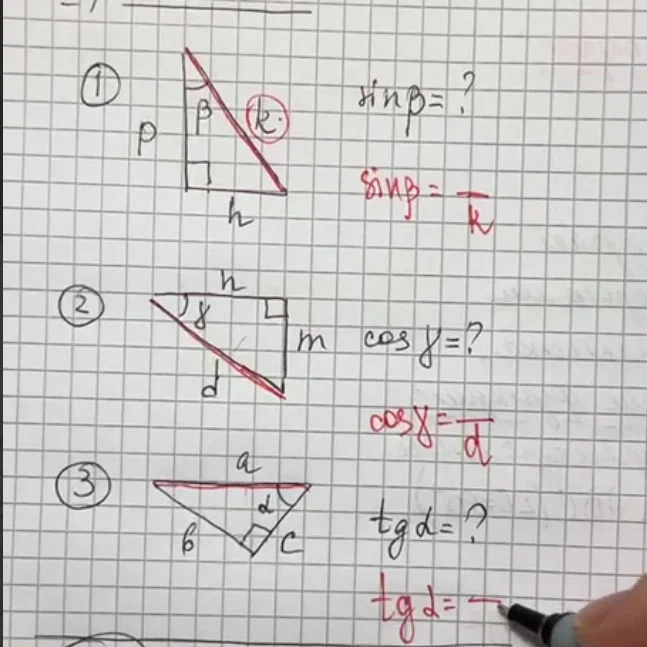 1
β
k
p
h
sin β = ?
sin β = — / k
2
n
γ
m
d
cos γ = ?
cos γ = — / d
3
a
α
b
c
tg α = ?
tg α = —